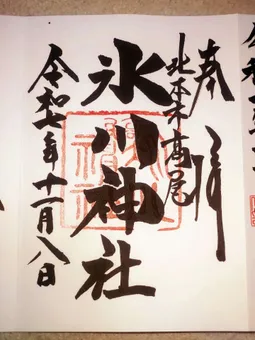 奉拝
北本市高尾
氷川神社
令和七年十一月八日